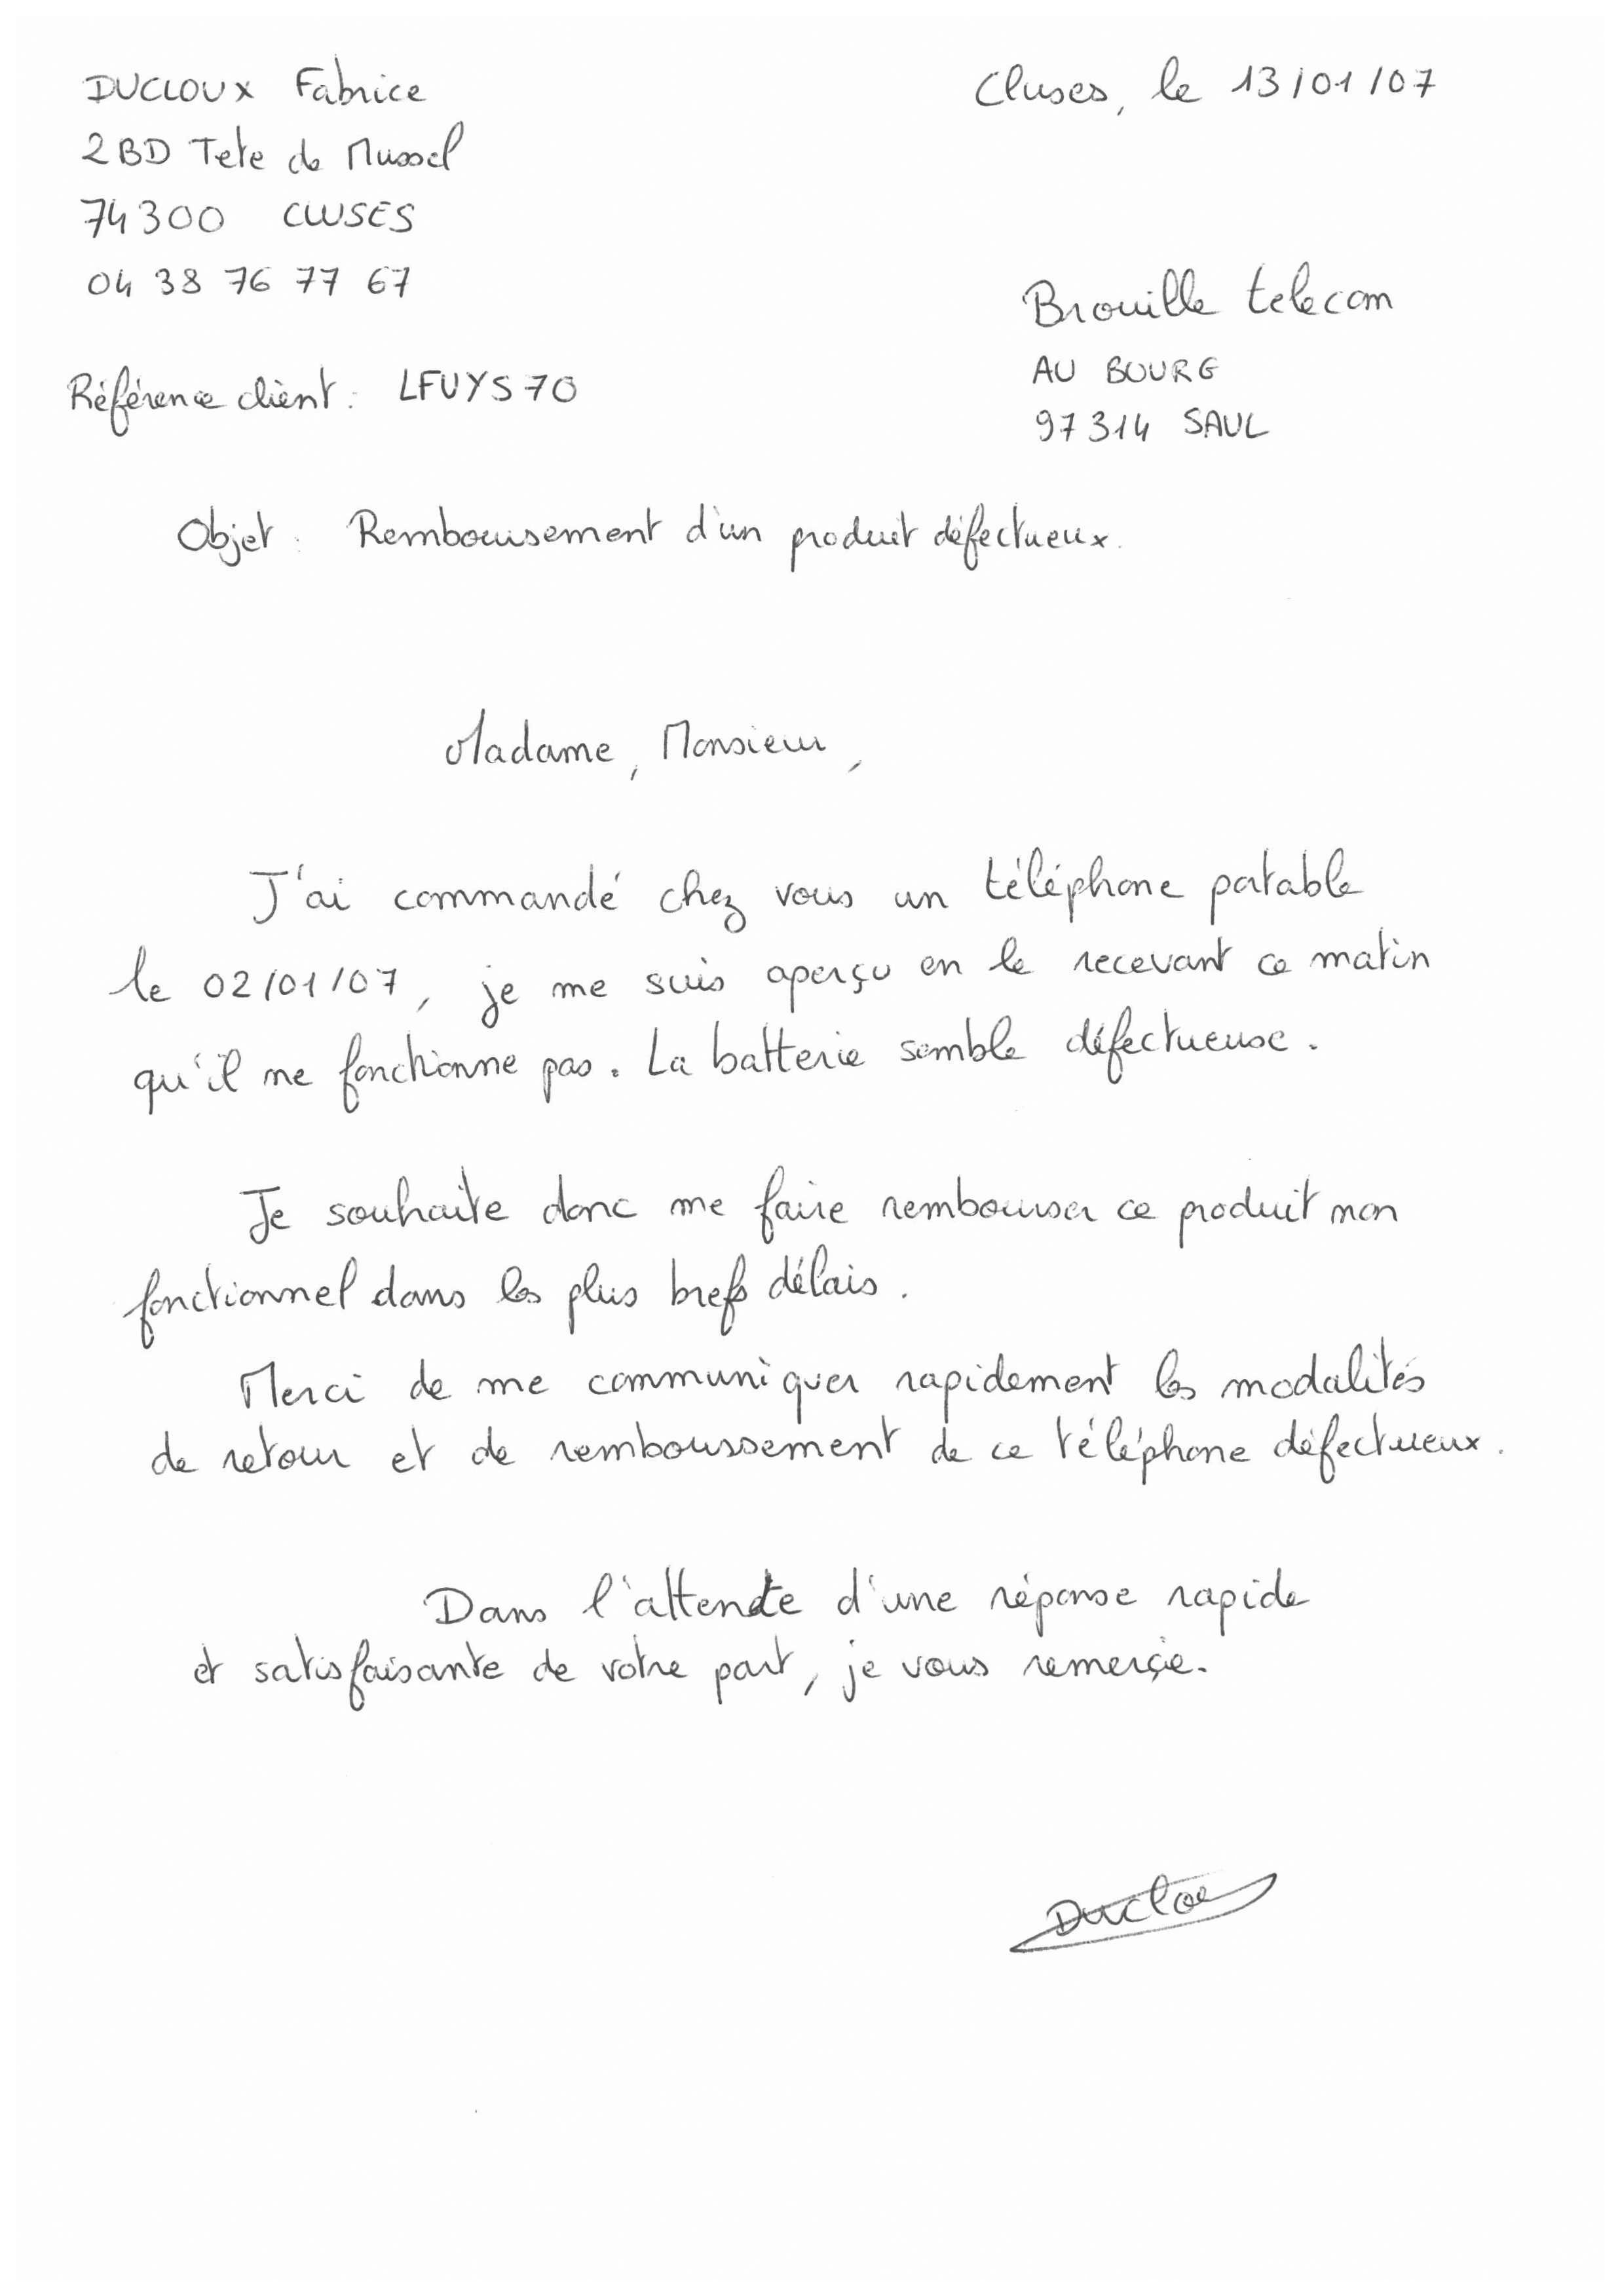 DUCLOUX Fabrice
2 BD Tete de Mussel
74300 CLUSES
04 38 76 77 67
Référence client : LFUYS70
Cluses, le 13/01/07
Brouille telecom
AU BOURG
97314 SAUL
Objet : Remboursement d'un produit défectueux.
Madame, Monsieur,
J'ai commandé chez vous un téléphone portable
le 02/01/07, je me suis aperçu en le recevant ce matin
qu'il ne fonctionne pas. La batterie semble défectueuse.
Je souhaite donc me faire rembourser ce produit non
fonctionnel dans les plus brefs délais.
Merci de me communiquer rapidement les modalités
de retour et de remboussement de ce téléphone défectueux.
Dans l'attente d'une réponse rapide
et satisfaisante de votre part, je vous remerçie.